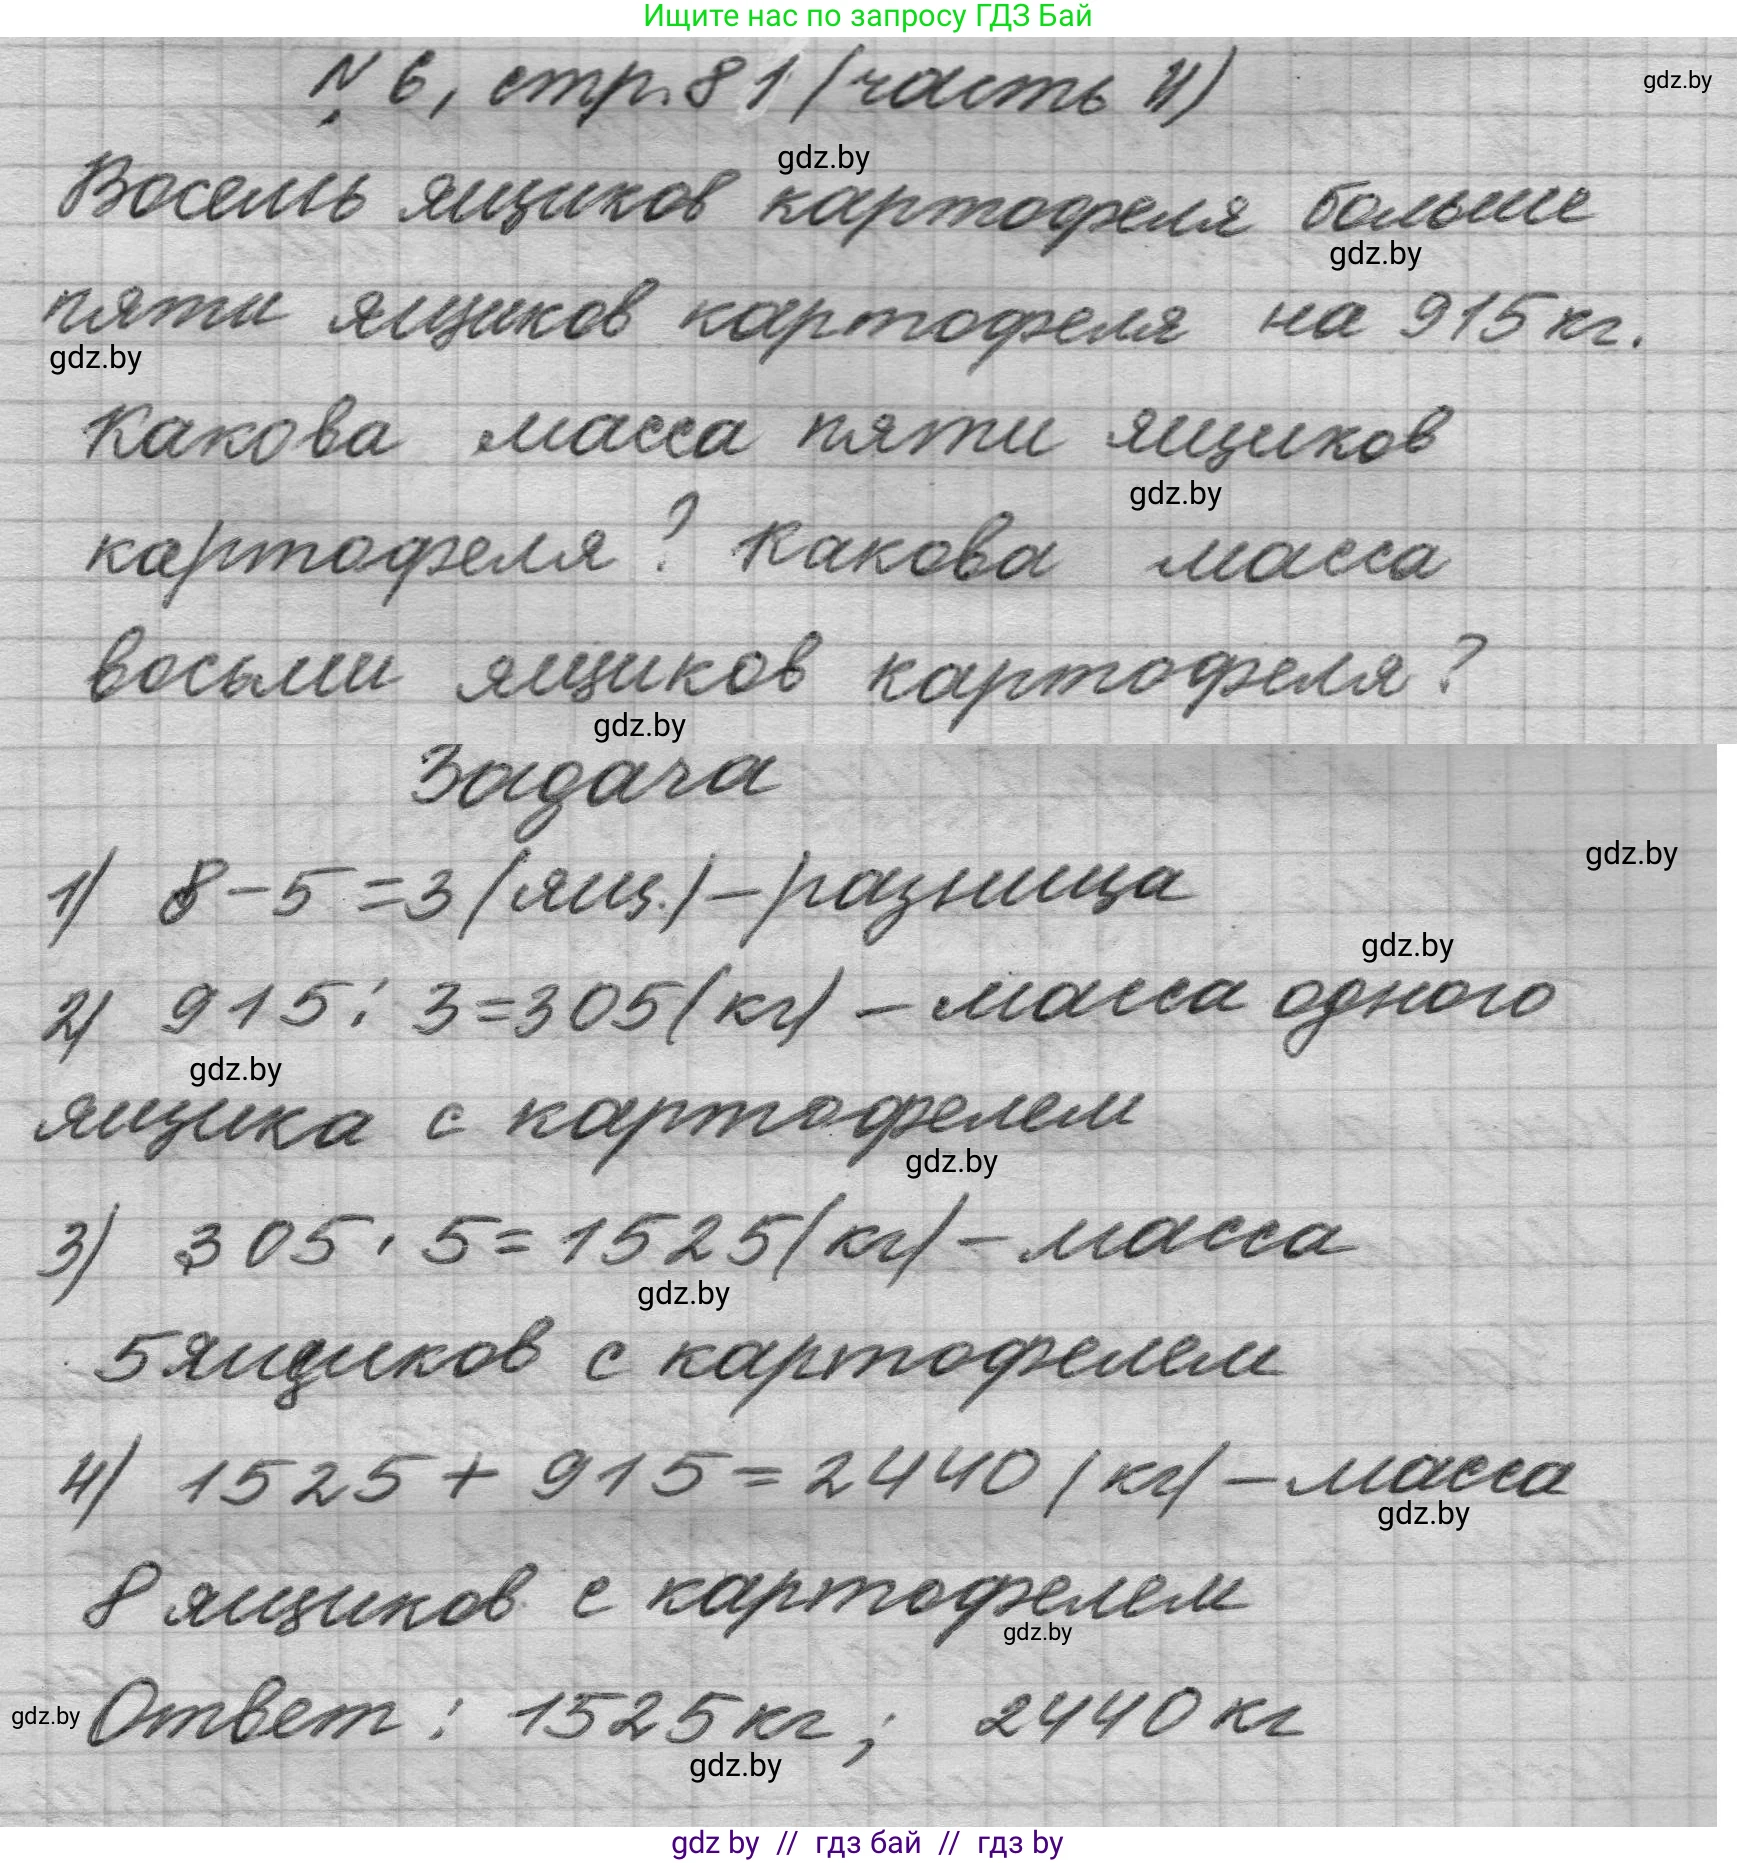 Ищите нас по запросу ГДЗ Бай
№ 6, стр. 81 (часть II)
gdz.by
gdz.by
Восемь ящиков картофеля больше
gdz.by
пяти ящиков картофеля на 915 кг.
gdz.by
Какова масса пяти ящиков
gdz.by
картофеля? Какова масса
восьми ящиков картофеля?
gdz.by
Задача
gdz.by
1) 8 - 5 = 3 (ящ.) - разница
gdz.by
2) 915 : 3 = 305 (кг) - масса одного
gdz.by
ящика с картофелем
gdz.by
3) 305 · 5 = 1525 (кг) - масса
gdz.by
5 ящиков с картофелем
4) 1525 + 915 = 2440 (кг) - масса
gdz.by
8 ящиков с картофелем
gdz.by
gdz.by
Ответ: 1525 кг; 2440 кг
gdz.by
gdz by // гдз бай // гдз by